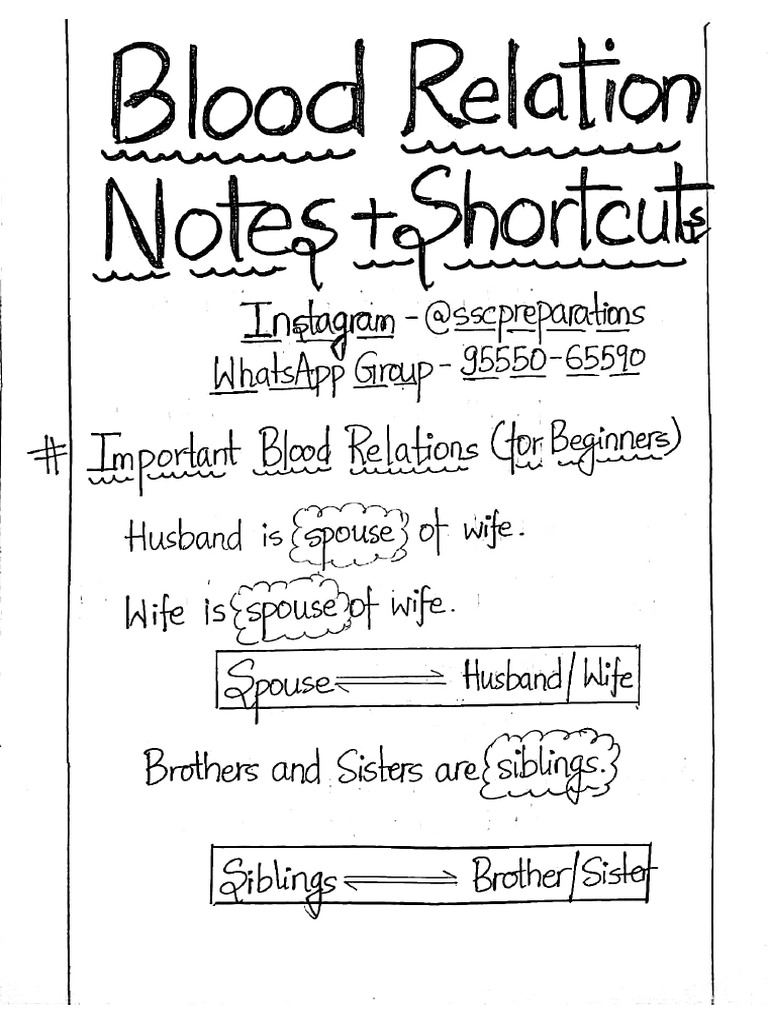 Blood Relation
Notes + Shortcuts
Instagram - @sscpreparations
WhatsApp Group - 95550-65590
# Important Blood Relations (for Beginners)
Husband is spouse of wife.
Wife is spouse of wife.
Spouse ⇌ Husband/Wife
Brothers and Sisters are siblings.
Siblings ⇌ Brother/Sister